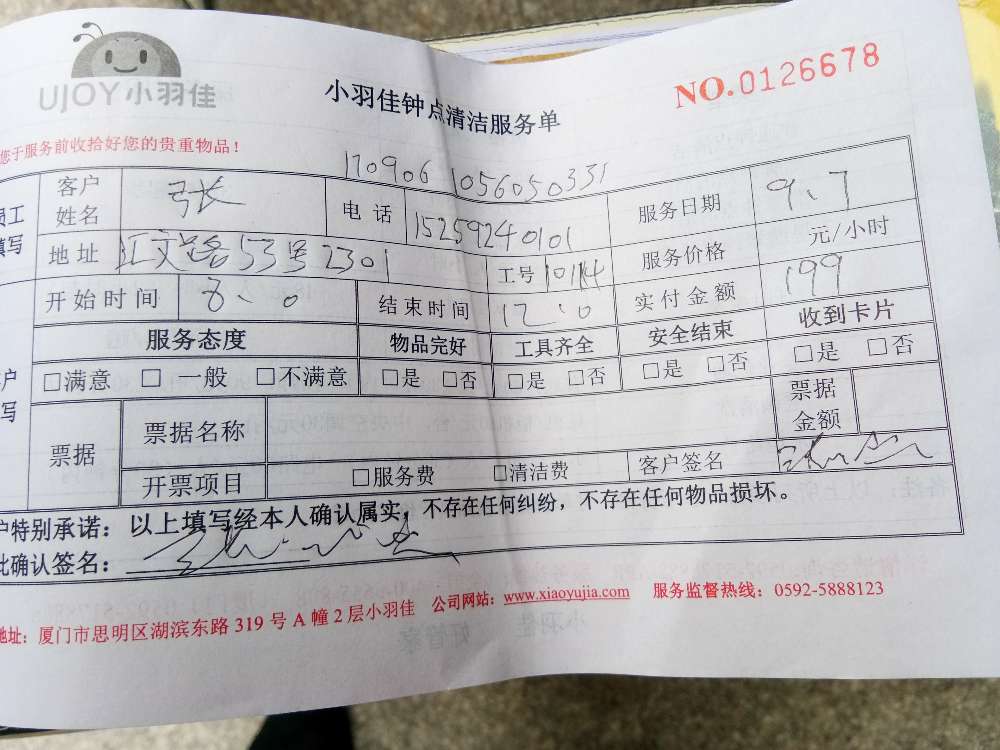 UJOY小羽佳
小羽佳钟点清洁服务单
NO.0126678
您于服务前收拾好您的贵重物品！
170906 1056050331
员工填写
客户姓名 张
电话 15259240101
服务日期 9、7
地址 汇文学客53号2301
工号
服务价格 元/小时
开始时间 8、0
结束时间 12、0
实付金额 199
服务态度 物品完好 工具齐全 安全结束 收到卡片
□满意 □一般 □不满意 □是 □否 □是 □否 □是 □否 □是 □否
票据 票据名称 票据金额
开票项目 □服务费 □清洁费 客户签名
户特别承诺：以上填写经本人确认属实，不存在任何纠纷，不存在任何物品损坏。
此确认签名：
地址：厦门市思明区湖滨东路 319 号 A 幢 2 层小羽佳 公司网站：www.xiaoyujia.com 服务监督热线：0592-5888123